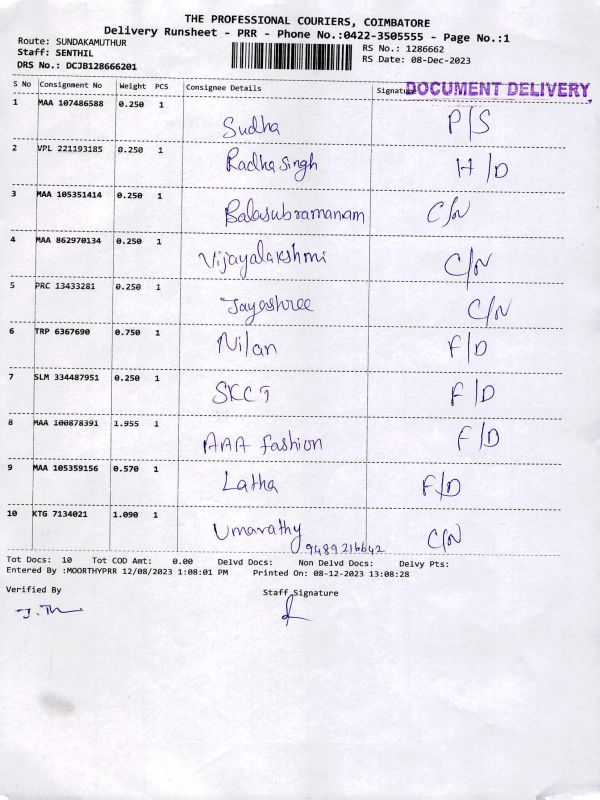 THE PROFESSIONAL COURIERS, COIMBATORE
Delivery Runsheet - PRR - Phone No.:0422-3505555 - Page No.:1
Route: SUNDAKAMUTHUR
Staff: SENTHIL
DRS No.: DCJB128666201
RS No.: 1286662
RS Date: 08-Dec-2023
DOCUMENT DELIVERY
S No Consignment No Weight PCS Consignee Details Signature
1 MAA 107486588 0.250 1 Sudha P/S
2 VPL 221193185 0.250 1 Radha Singh H/D
3 MAA 105351414 0.250 1 Balasubramanam C/N
4 MAA 862970134 0.250 1 Vijayalakshmi C/N
5 PRC 13433281 0.250 1 Jayashree C/N
6 TRP 6367690 0.750 1 Nilan F/D
7 SLM 334487951 0.250 1 SKCT F/D
8 MAA 100878391 1.955 1 AAA fashion F/D
9 MAA 105359156 0.570 1 Latha F/D
10 KTG 7134021 1.090 1 Umarathy 9489216642 C/N
Tot Docs: 10 Tot COD Amt: 0.00 Delvd Docs: Non Delvd Docs: Delvy Pts:
Entered By :MOORTHYPRR 12/08/2023 1:08:01 PM Printed On: 08-12-2023 13:08:28
Verified By Staff Signature